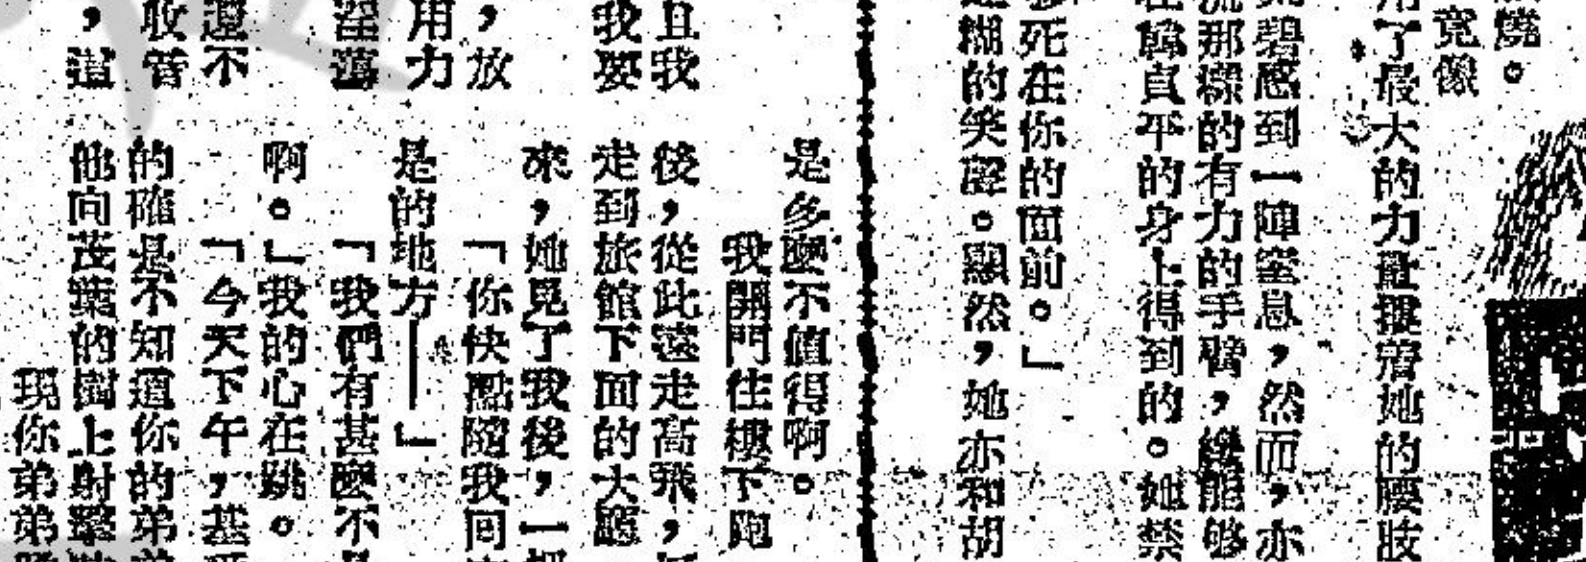 燒。
竟像
用了最大的力量摟着她的腰肢
碧感到一陣窒息，然而，亦
流那樣的有力的手臂，纔能够
在偉真平的身上得到的。她禁
死在你的面前。」
糊的笑聲。顯然，她亦和胡
是多麼不值得啊。
我開門往樓下跑
且我
後，從此遠走高飛，
我要
走到旅館下面的大廳
來，她見了我後，一
，放
「你快點隨我同
用力
是的地方——」
淫蕩
「我們有甚麼不
啊。」我的心在跳。
還不
「今天下午，基
收管
的確是不知道你的弟
，這
他向茂葉的樹上射擊
現你弟弟